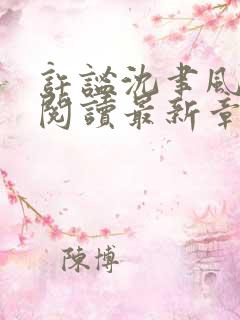 許謐沈聿風
閱讀最新章
陳博